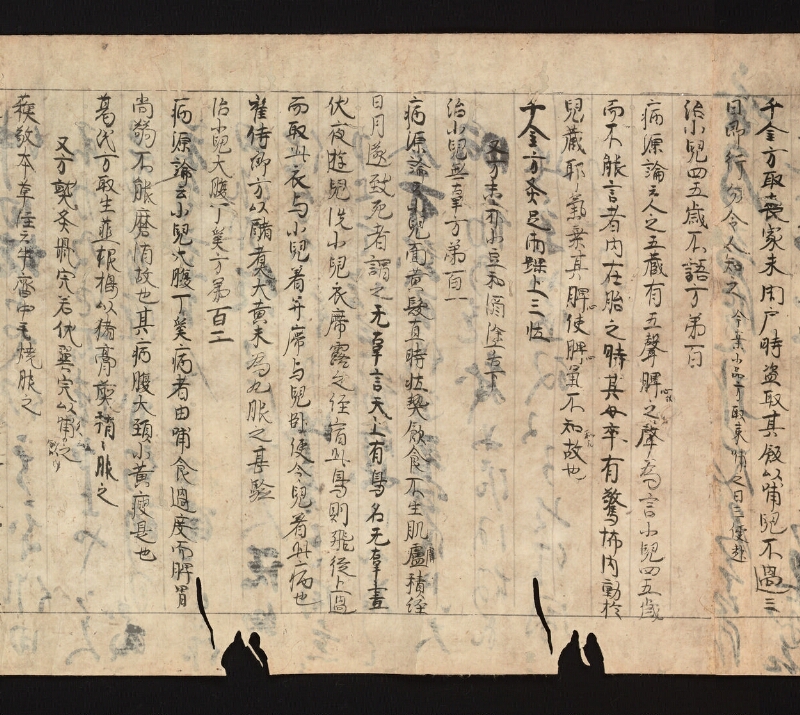 千金方取喪家未開戶時盜取其飯以哺兒不過三
日即行勿令人知之 今案小品方取哺之日三便起
治小兒四五歲不語方第百
病源論云人之五藏有五聲脾之聲為言小兒四五歲
而不能言者由在胎之時其母卒有驚怖內動於
兒藏耶氣乘其脾使脾氣不和故也
千金方灸足兩踝上三壯
又方末赤小豆和酒塗舌下
治小兒無辜方第百一
病源論云小兒面黃髮直時壯熱飲食不生肌膚積經
日月遂致死者謂之无辜言天上有鳥名无辜晝
伏夜遊兒洗小兒衣席露之經宿此鳥則飛從上過
而取此衣与小兒着并席与兒臥便令兒着此病也
崔侍郎方以醋煮大黃末為丸服之甚驗
治小兒大腹丁奚方第百二
病源論云小兒大腹丁奚病者由哺食過度而脾胃
尚弱不能磨消故也其病腹大頸小黃瘦是也
葛氏方取生韮根搗以猪膏煎稍〻服之
又方熟灸掘穴若伏翼完以哺之
蘇敬本草注云牛齊中毛燒服之